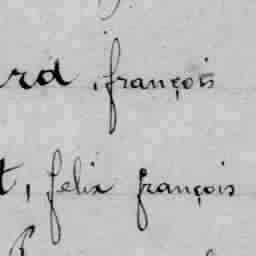 rd, françois
t, felix françois